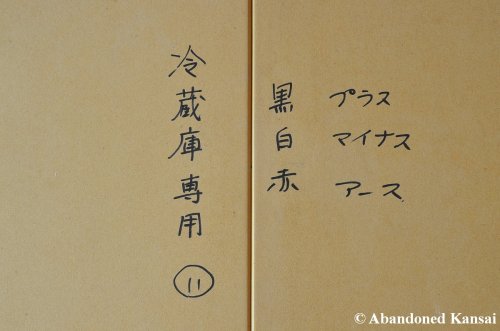 冷蔵庫専用 ⑪
黒 プラス
白 マイナス
赤 アース
© Abandoned Kansai